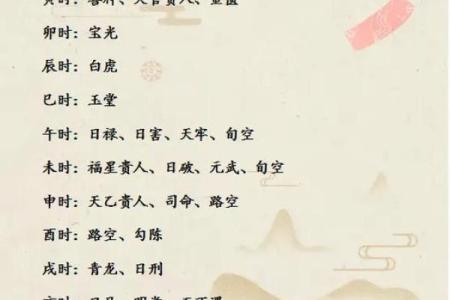 寅时：天官贵人、金匮
卯时：宝光
辰时：白虎
巳时：玉堂
午时：日禄、日害、天牢、旬空
未时：福星贵人、日破、元武、旬空
申时：天乙贵人、司命、路空
酉时：路空、勾陈
戌时：青龙、日刑